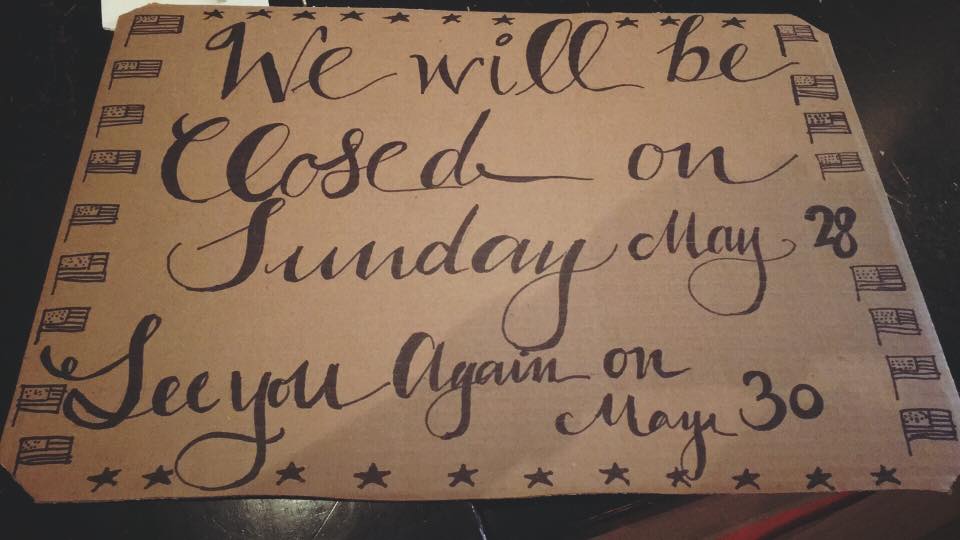 We will be
Closed on
Sunday May 28
See you Again on
May 30